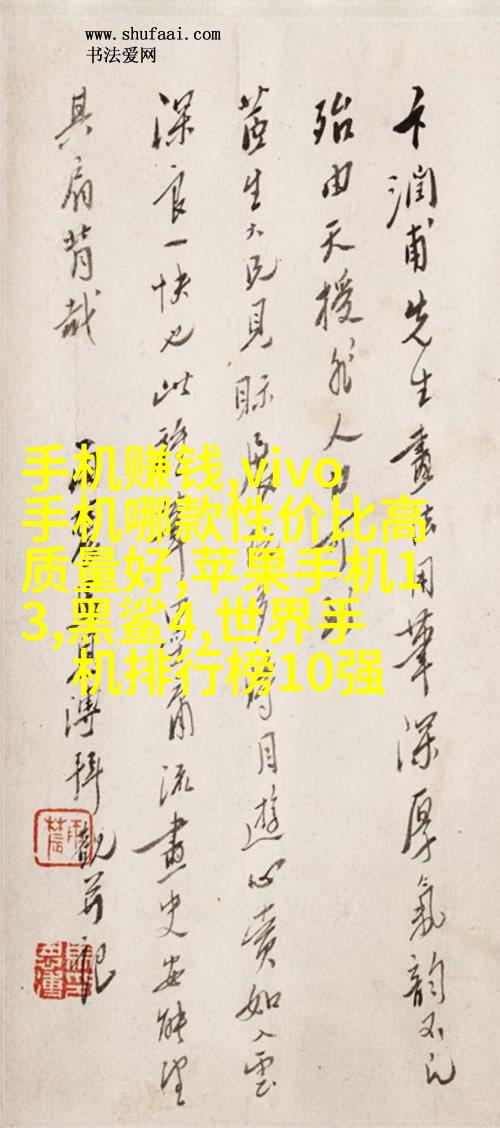 www.shufaai.com
书法爱网
卞潤甫先生畫法用筆深厚氣韻不凡
殆由天授非人力可到
生大兄見眎 目遊心 如入雲
深良一快也此 筆 流畫史安能望
其肩背哉
溥拜觀並記
手机赚钱,vivo
手机哪款性价比高
质量好,苹果手机1
3,黑鲨4,世界手
机排行榜10强